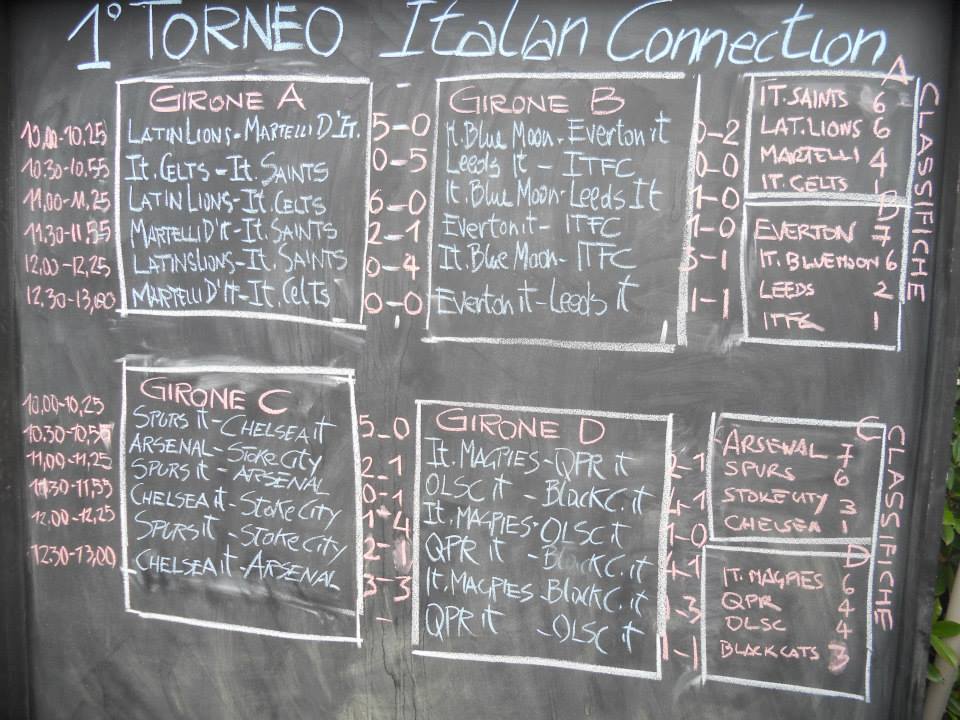 1° TORNEO Italian Connection
GIRONE A
10,00-10,25 LATIN LIONS - MARTELLI D'It. 5-0
10.30-10.55 It. CELTS - It. SAINTS 0-5
11.00-11,25 LATIN LIONS - It. CELTS 6-0
11.30-11.55 MARTELLI D'It - It. SAINTS 2-1
12,00-12,25 LATINSLIONS - It. SAINTS 0-4
12.30-13,00 MARTELLI D'It - It. Celts 0-0
GIRONE B
It. Blue Moon - Everton it 0-2
Leeds It - ITFC 0-0
It. Blue Moon - Leeds It 1-0
Everton it - ITFC 1-0
It. Blue Moon - ITFC -1
Everton it - Leeds it 1-1
CLASSIFICHE
A
IT. SAINTS 6
LAT. LIONS 6
MARTELLI 4
IT. CELTS
EVERTON 7
IT. BLUEMOON 6
LEEDS 2
ITFC 1
GIRONE C
10.00-10,25 SPURS it - CHELSEA it 5-0
10.30-10,55 ARSENAL - Stoke City 2-1
11,00-11,25 SPURS it - ARSENAL 0-1
11.30-11,55 CHELSEA it - STOKE City 1-4
12.00-12,25 SPURS it - STOKE City 2-
12.30-13,00 CHELSEA it - ARSENAL 3-3
-
GIRONE D
It. MAGPIES - QPR it -1
OLSC it - BlackC. it 4-1
It. MAGPIES - OLSC it 1-0
QPR it - BlackC. it 4-1
It. MAGPIES - BlackC. it -3
QPR it - OLSC it 1-1
CLASSIFICHE
C
ARSENAL 7
SPURS 6
STOKE CITY 3
CHELSEA 1
D
IT. MAGPIES 6
QPR 4
OLSC 4
BLACK CATS 3